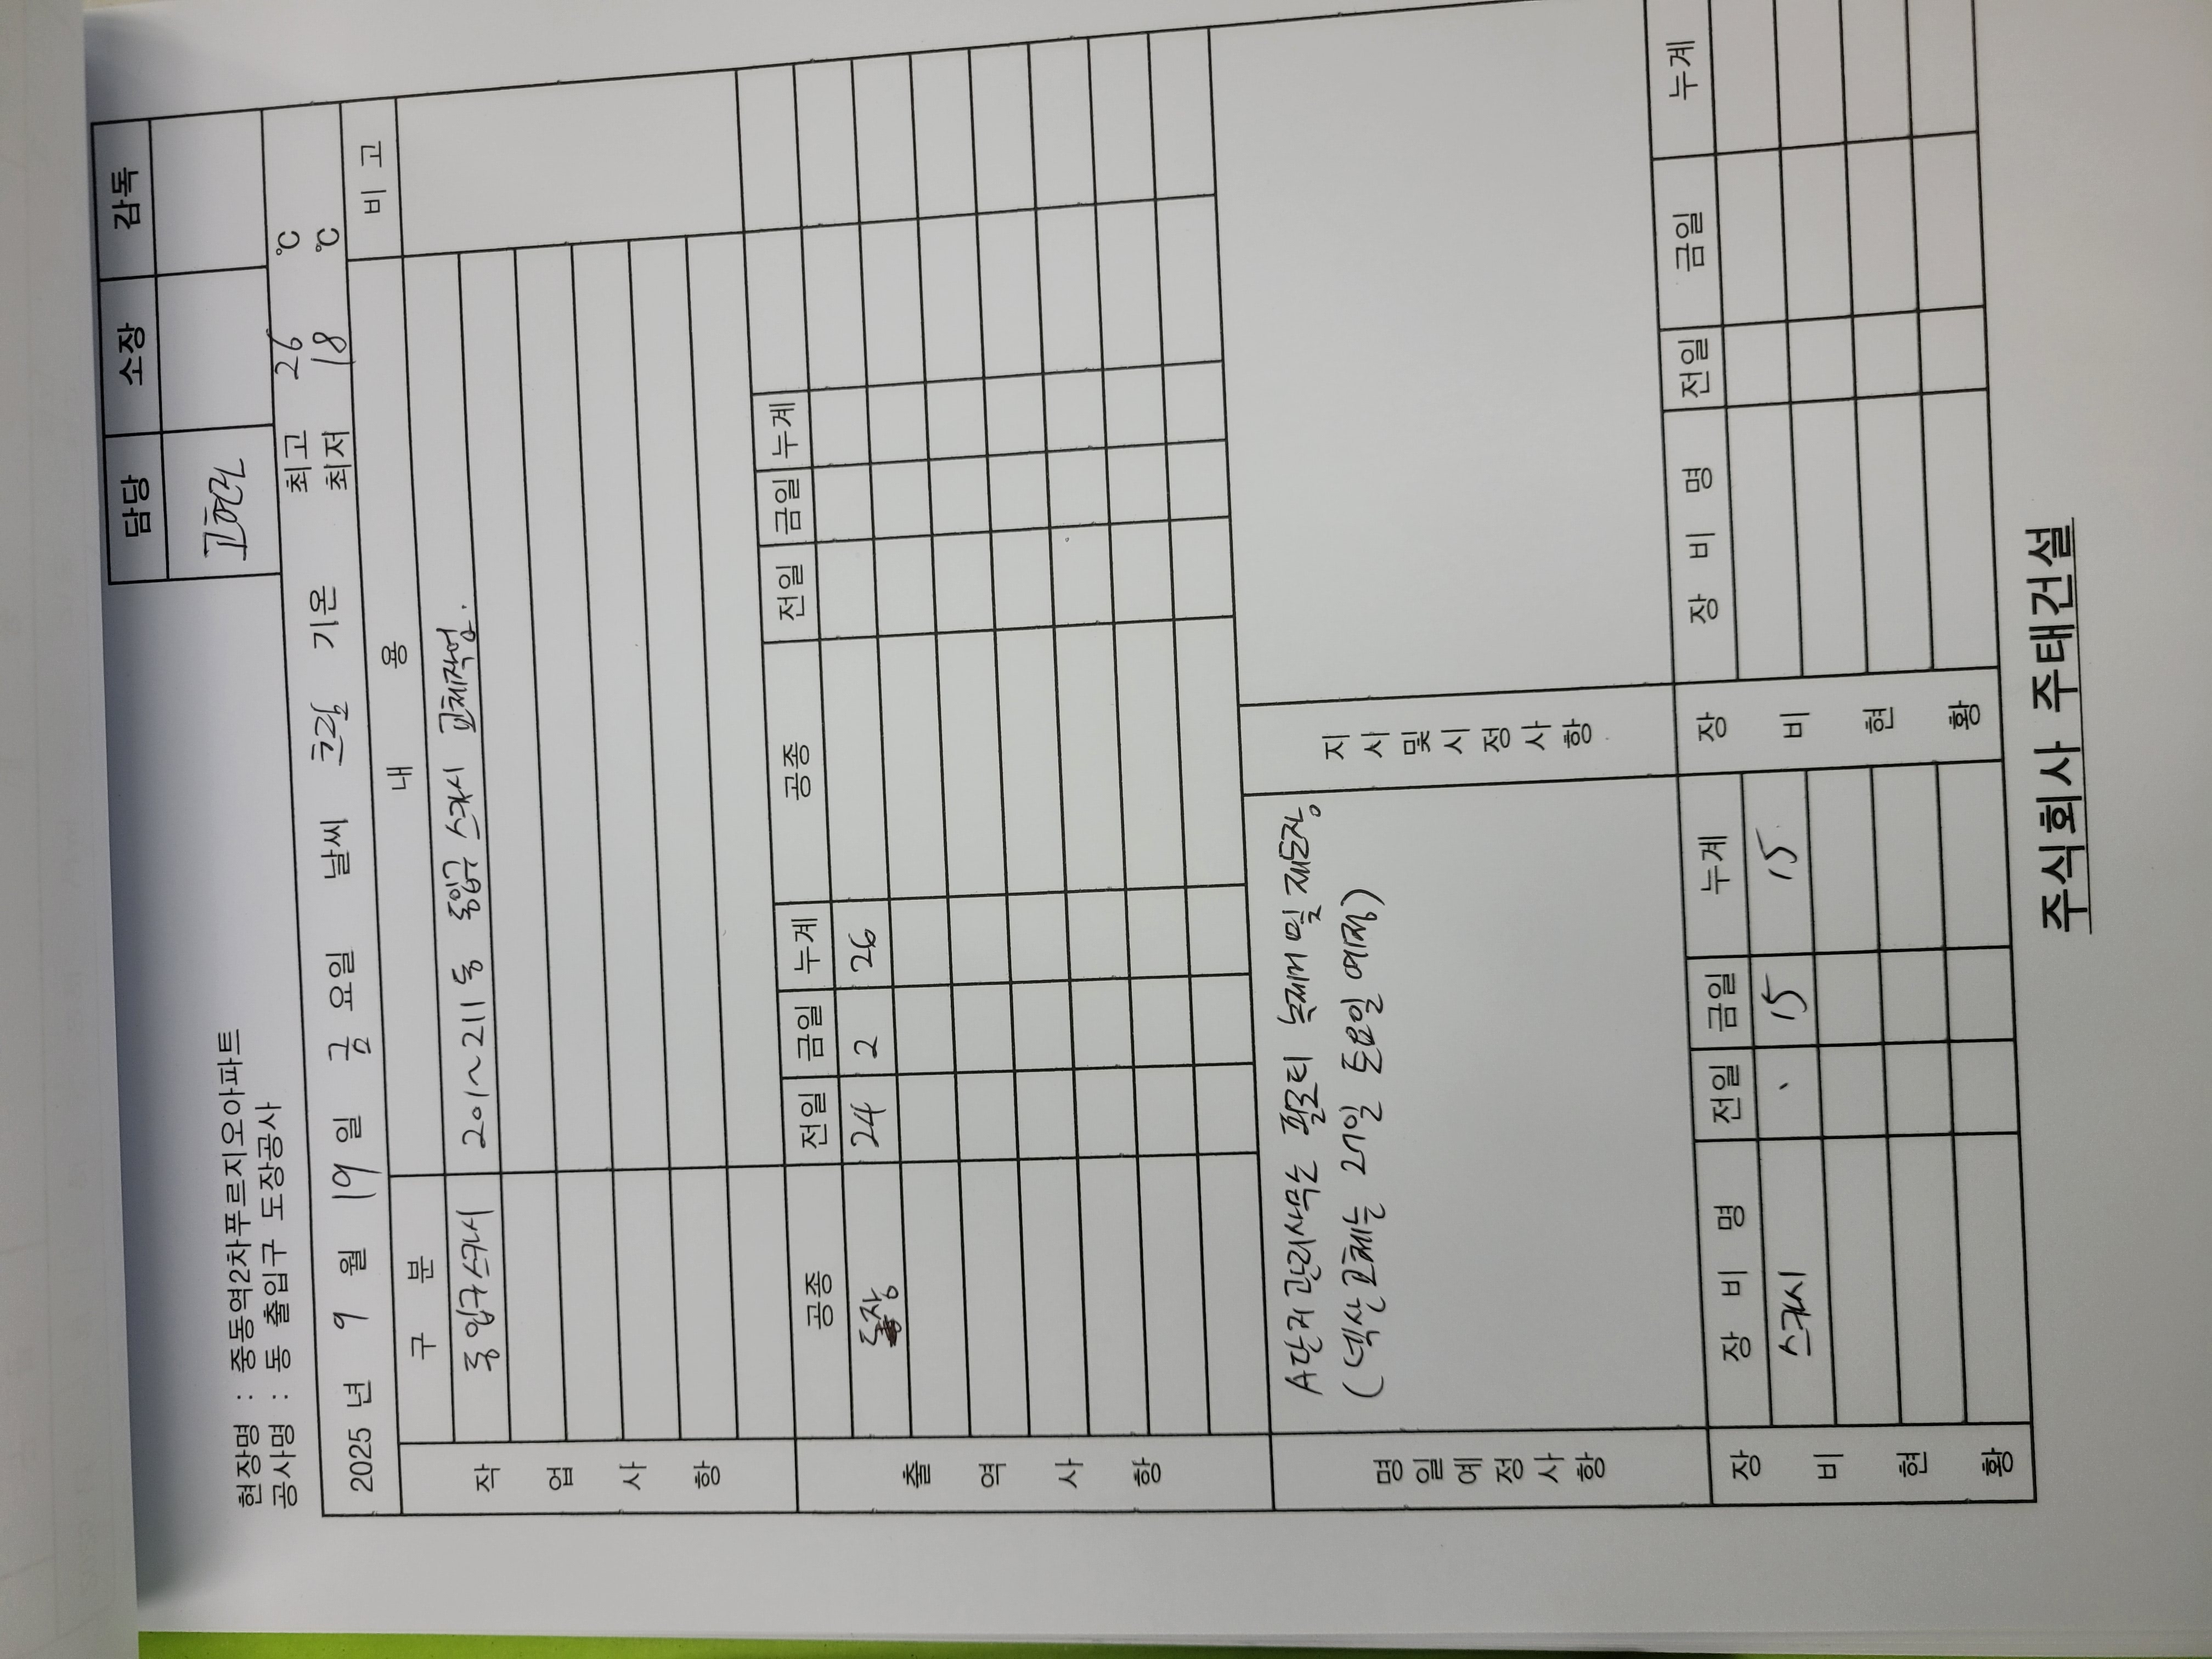 담당 소장 감독
현장명 : 중동역2차푸르지오아파트
공사명 : 동 출입구 도장공사
2025 년 9 월 19 일 금 요일 날씨 흐림 기온 최고 26 ℃
최저 18 ℃
구 분 내 용 비 고
작업사항
동입구스카시 201~211동 동입구 스카시 교체작업.
출역사항
공종 전일 금일 누계 공종 전일 금일 누계
도장 24 2 26
명일예정사항
A단지관리사무소 필로티 녹제거 및 재도장
(넥산교체는 27일 토요일 예정)
지시및시정사항
장비현황
장 비 명 전일 금일 누계
스카시 15 15
장비현황
장 비 명 전일 금일 누계
주식회사 주태건설